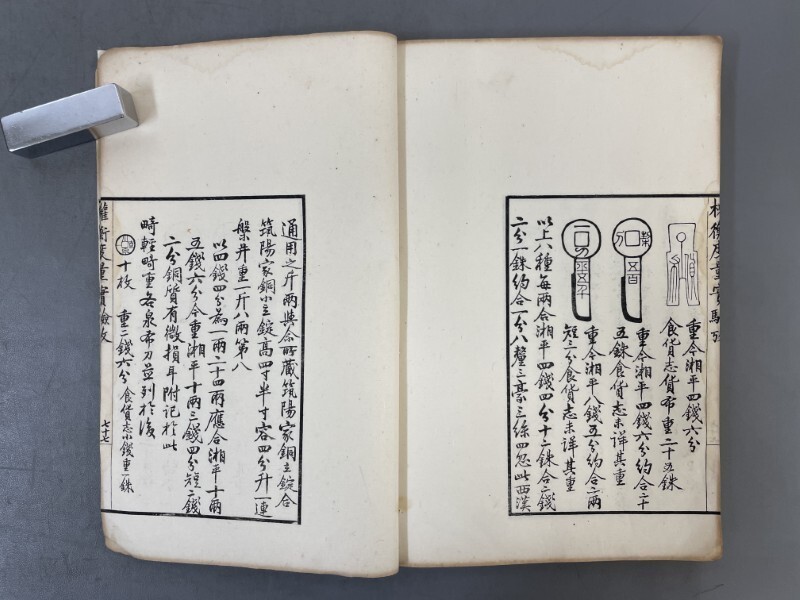 重今湘平四錢六分
食貨志貨布重二十五銖
重今湘平四錢六分約合二十
五銖食貨志未詳其重
重今湘平八錢五分約合二兩
短三分食貨志未詳其重
以上六種每兩合湘平四錢四分十二銖合二錢
二分一銖約合一分八釐三毫三絲四忽此西漢
通用之斤兩與余所藏筑陽家銅立錠合
筑陽家銅小立錠高四寸半寸容四分升一連
槃并重一斤八兩第八
以四錢四分為一兩二十四兩應合湘平十兩
五錢六分今重湘平十兩三錢四分短二錢
二分銅質有微損耳附記於此
畸輕畸重各泉布刀並列於後
十枚 重二錢六分食貨志小錢重一銖
權衡度量實驗攷
七十七